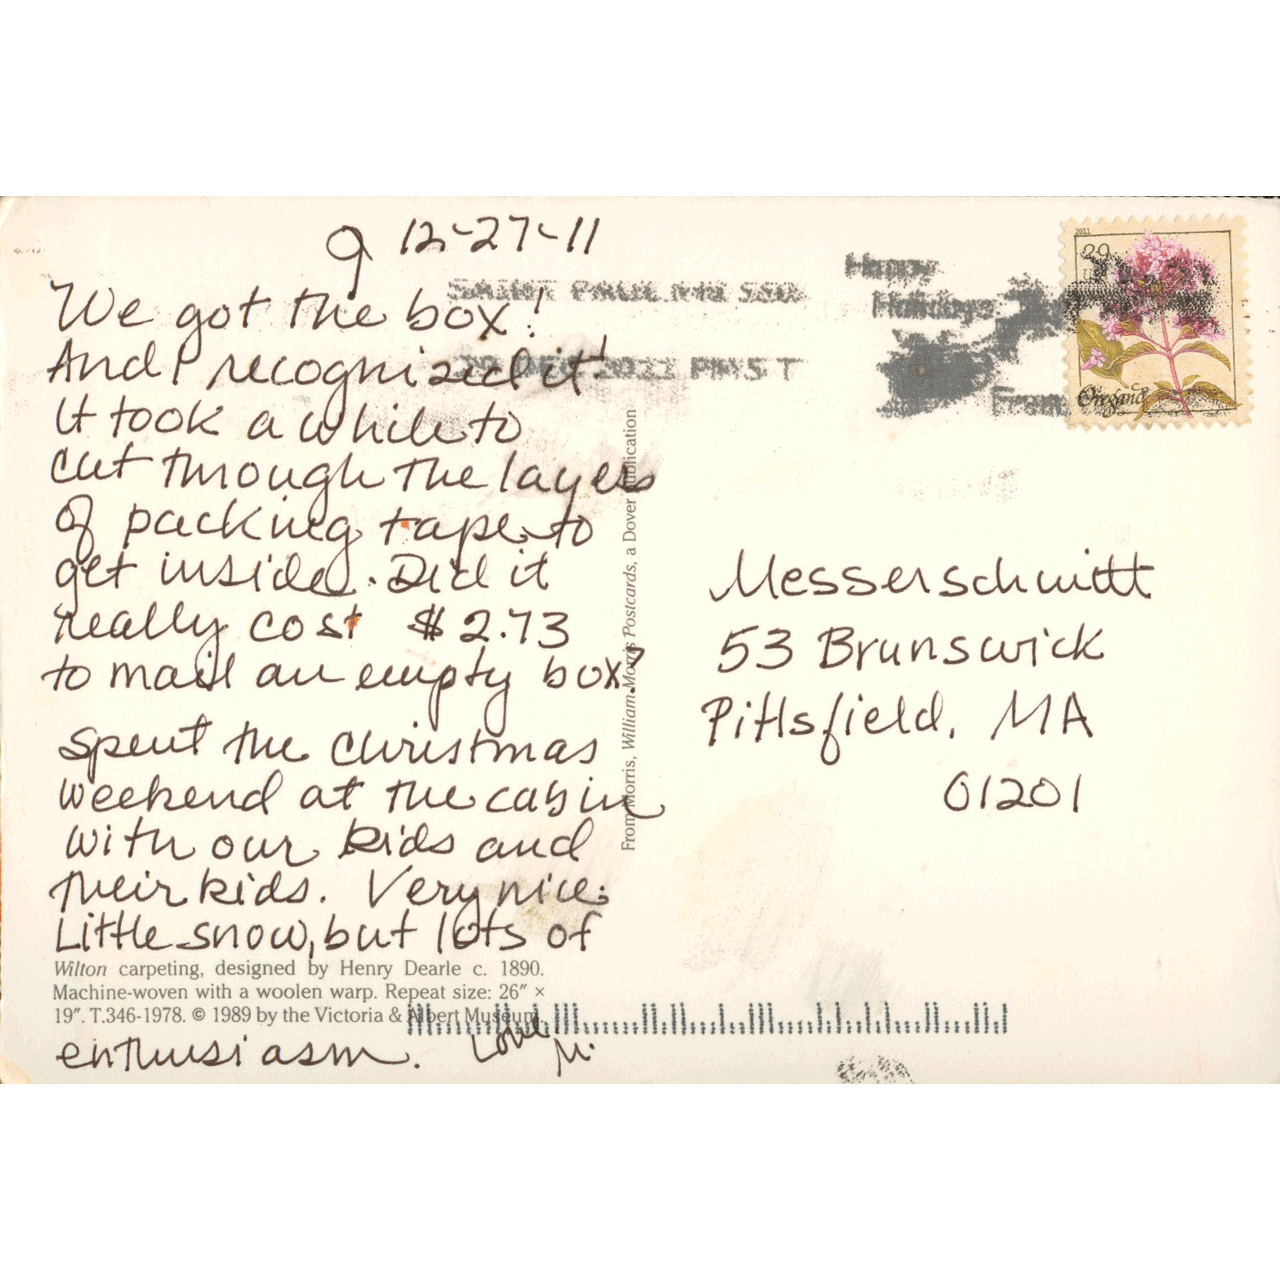 9 12-27-11
We got the box!
And I recognized it!
It took a while to
cut through the layers
of packing tape to
get inside. Did it
really cost $2.73
to mail an empty box?
Spent the Christmas
weekend at the cabin
with our kids and
their kids. Very nice.
Little snow, but lots of
enthusiasm. Love
M.
Wilton carpeting, designed by Henry Dearle c. 1890.
Machine-woven with a woolen warp. Repeat size: 26″ ×
19″. T.346-1978. © 1989 by the Victoria & Albert Museum.
From Morris, William Morris Postcards, a Dover Publication
SAINT PAUL MN 550
PM 5 T
Happy
Holidays
From
2011
29
USA
Oregano
Messerschmitt
53 Brunswick
Pittsfield, MA
01201